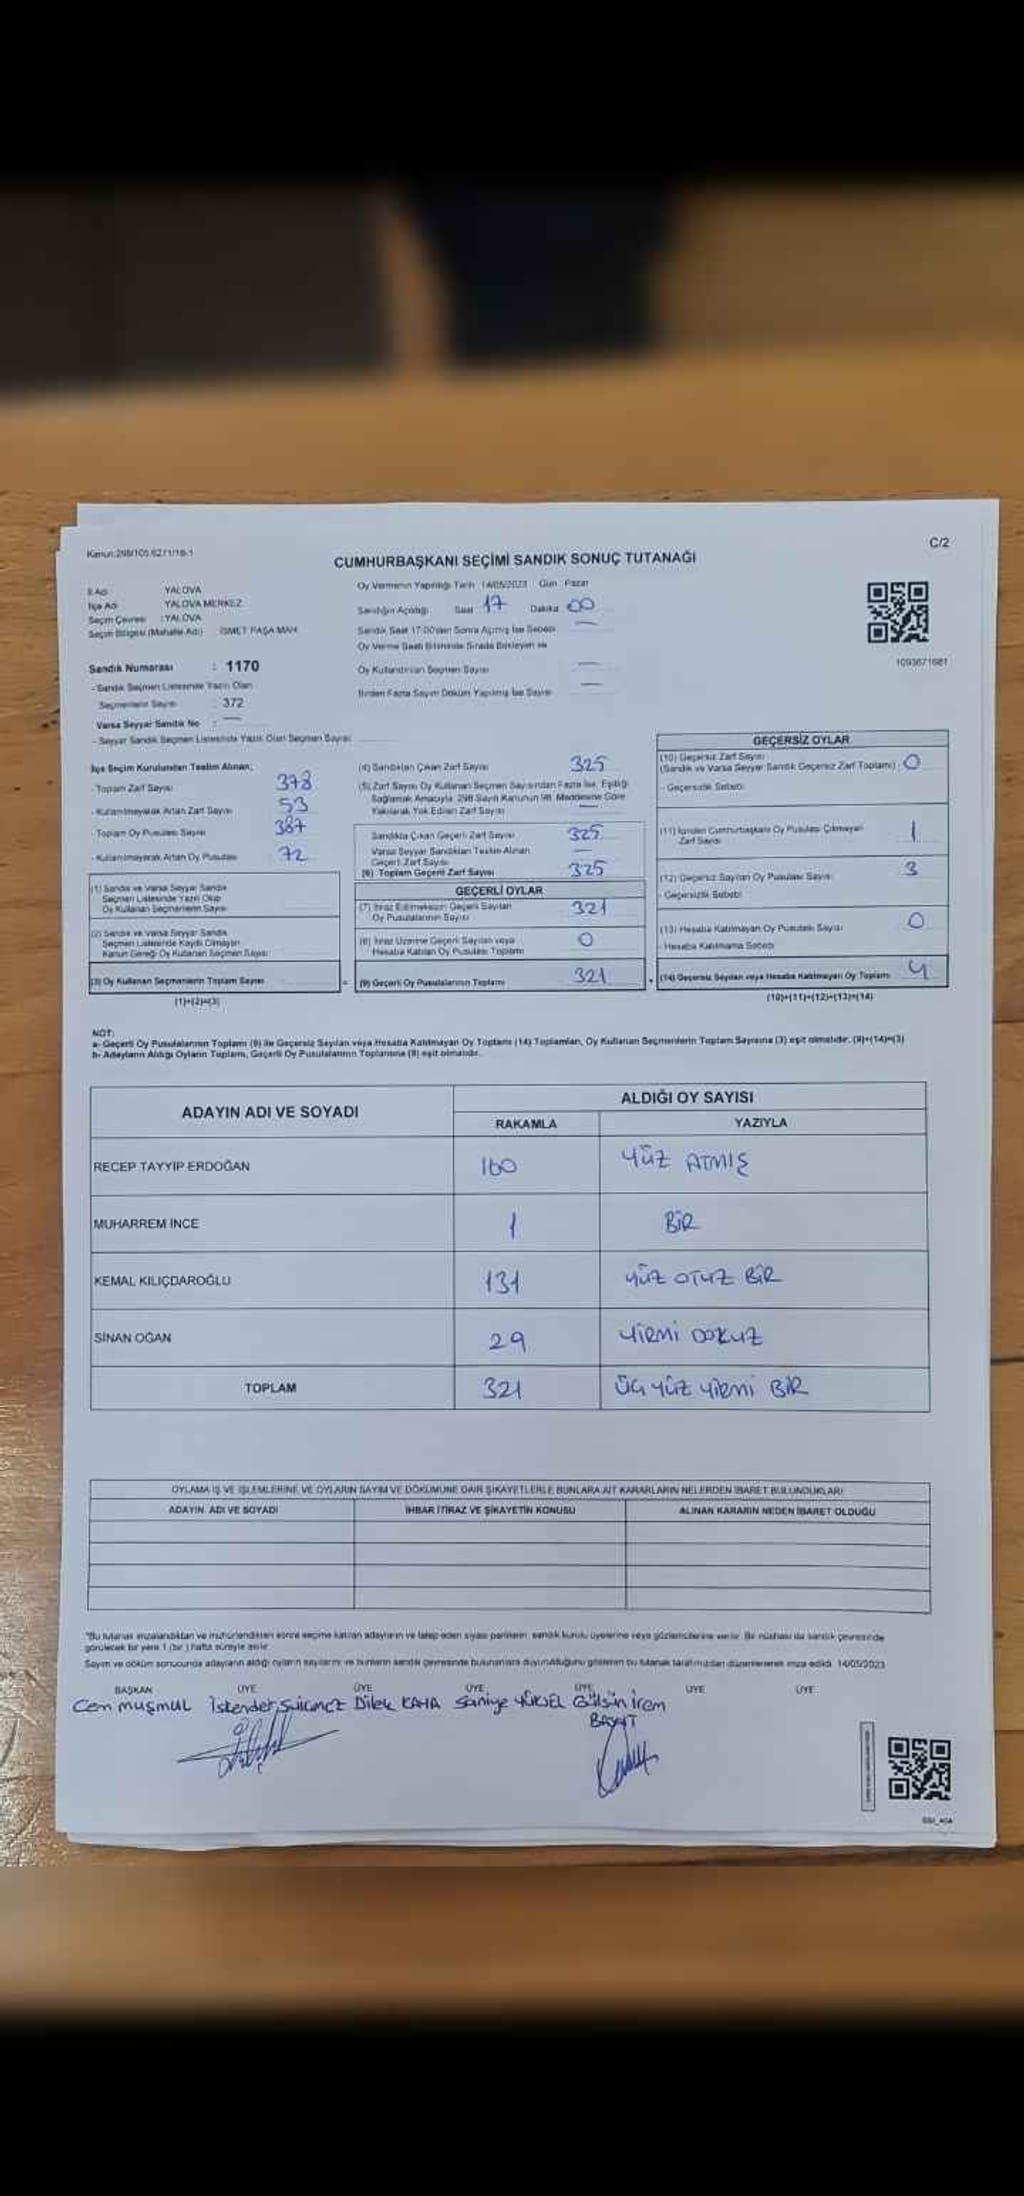 Kanun:298/105.6271/16-1
C/2
CUMHURBAŞKANI SEÇİMİ SANDIK SONUÇ TUTANAĞI
İl Adı YALOVA
İlçe Adı YALOVA MERKEZ
Seçim Çevresi : YALOVA
Seçim Bölgesi (Mahalle Adı) İSMET PAŞA MAH.
Oy Vermenin Yapıldığı Tarih 14/05/2023 Gün Pazar
Sandığın Açıldığı Saat 17 Dakika 00
Sandık Saat 17:00'den Sonra Açılmış İse Sebebi
Oy Verme Saati Bitiminde Sırada Bekleyen ve
Oy Kullandırılan Seçmen Sayısı
Birden Fazla Sayım Döküm Yapılmış İse Sayısı
1093671681
Sandık Numarası : 1170
- Sandık Seçmen Listesinde Yazılı Olan
Seçmenlerin Sayısı : 372
Varsa Seyyar Sandık No : —
- Seyyar Sandık Seçmen Listesinde Yazılı Olan Seçmen Sayısı
İlçe Seçim Kurulundan Teslim Alınan;
- Toplam Zarf Sayısı 378
- Kullanılmayarak Artan Zarf Sayısı 53
- Toplam Oy Pusulası Sayısı 387
- Kullanılmayarak Artan Oy Pusulası 72
(1) Sandık ve Varsa Seyyar Sandık
Seçmen Listesinde Yazılı Olup
Oy Kullanan Seçmenlerin Sayısı
(2) Sandık ve Varsa Seyyar Sandık
Seçmen Listesinde Kaydı Olmayan
Kanun Gereği Oy Kullanan Seçmen Sayısı
(3) Oy Kullanan Seçmenlerin Toplam Sayısı
(1)+(2)=(3)
(4) Sandıktan Çıkan Zarf Sayısı 325
(5) Zarf Sayısı Oy Kullanan Seçmen Sayısından Fazla İse, Eşitliği
Sağlamak Amacıyla, 298 Sayılı Kanunun 98. Maddesine Göre
Yakılarak Yok Edilen Zarf Sayısı —
Sandıkta Çıkan Geçerli Zarf Sayısı 325
Varsa Seyyar Sandıktan Teslim Alınan
Geçerli Zarf Sayısı —
(6) Toplam Geçerli Zarf Sayısı 325
GEÇERLİ OYLAR
(7) İtiraz Edilmeksizin Geçerli Sayılan
Oy Pusulalarının Sayısı 321
(8) İtiraz Üzerine Geçerli Sayılan veya
Hesaba Katılan Oy Pusulası Toplamı 0
(9) Geçerli Oy Pusulalarının Toplamı 321
GEÇERSİZ OYLAR
(10) Geçersiz Zarf Sayısı
(Sandık ve Varsa Seyyar Sandık Geçersiz Zarf Toplamı) 0
- Geçersizlik Sebebi
(11) İçinden Cumhurbaşkanı Oy Pusulası Çıkmayan
Zarf Sayısı 1
(12) Geçersiz Sayılan Oy Pusulası Sayısı 3
- Geçersizlik Sebebi
(13) Hesaba Katılmayan Oy Pusulası Sayısı 0
- Hesaba Katılmama Sebebi
(14) Geçersiz Sayılan veya Hesaba Katılmayan Oy Toplamı 4
(10)+(11)+(12)+(13)=(14)
NOT:
a- Geçerli Oy Pusulalarının Toplamı (9) ile Geçersiz Sayılan veya Hesaba Katılmayan Oy Toplamı (14) Toplamları, Oy Kullanan Seçmenlerin Toplam Sayısına (3) eşit olmalıdır. (9)+(14)=(3)
b- Adayların Aldığı Oyların Toplamı, Geçerli Oy Pusulalarının Toplamına (9) eşit olmalıdır.
ADAYIN ADI VE SOYADI
ALDIĞI OY SAYISI
RAKAMLA YAZIYLA
RECEP TAYYİP ERDOĞAN 160 YÜZ ATMIŞ
MUHARREM İNCE 1 BİR
KEMAL KILIÇDAROĞLU 131 YÜZ OTUZ BİR
SİNAN OĞAN 29 YİRMİ DOKUZ
TOPLAM 321 ÜÇ YÜZ YİRMİ BİR
OYLAMA İŞ VE İŞLEMLERİNE VE OYLARIN SAYIM VE DÖKÜMÜNE DAİR ŞİKAYETLERLE BUNLARA AİT KARARLARIN NELERDEN İBARET BULUNDUKLARI
ADAYIN ADI VE SOYADI İHBAR İTİRAZ VE ŞİKAYETİN KONUSU ALINAN KARARIN NEDEN İBARET OLDUĞU
"Bu tutanak imzalandıktan ve mühürlendikten sonra seçime katılan adayların ve talep eden siyasi partilerin, sandık kurulu üyelerine veya gözlemcilerine verilir. Bir nüshası da sandık çevresinde
görülecek bir yere 1 (bir ) hafta süreyle asılır.
Sayım ve döküm sonucunda adayların aldığı oyların sayılarını ve bunların sandık çevresinde bulunanlara duyurulduğunu gösteren bu tutanak tarafımızdan düzenlenerek imza edildi. 14/05/2023
BAŞKAN ÜYE ÜYE ÜYE ÜYE ÜYE ÜYE
Cem muşmul İskender Dilek KAYA Saniye YÜKSEL Gülsün irem